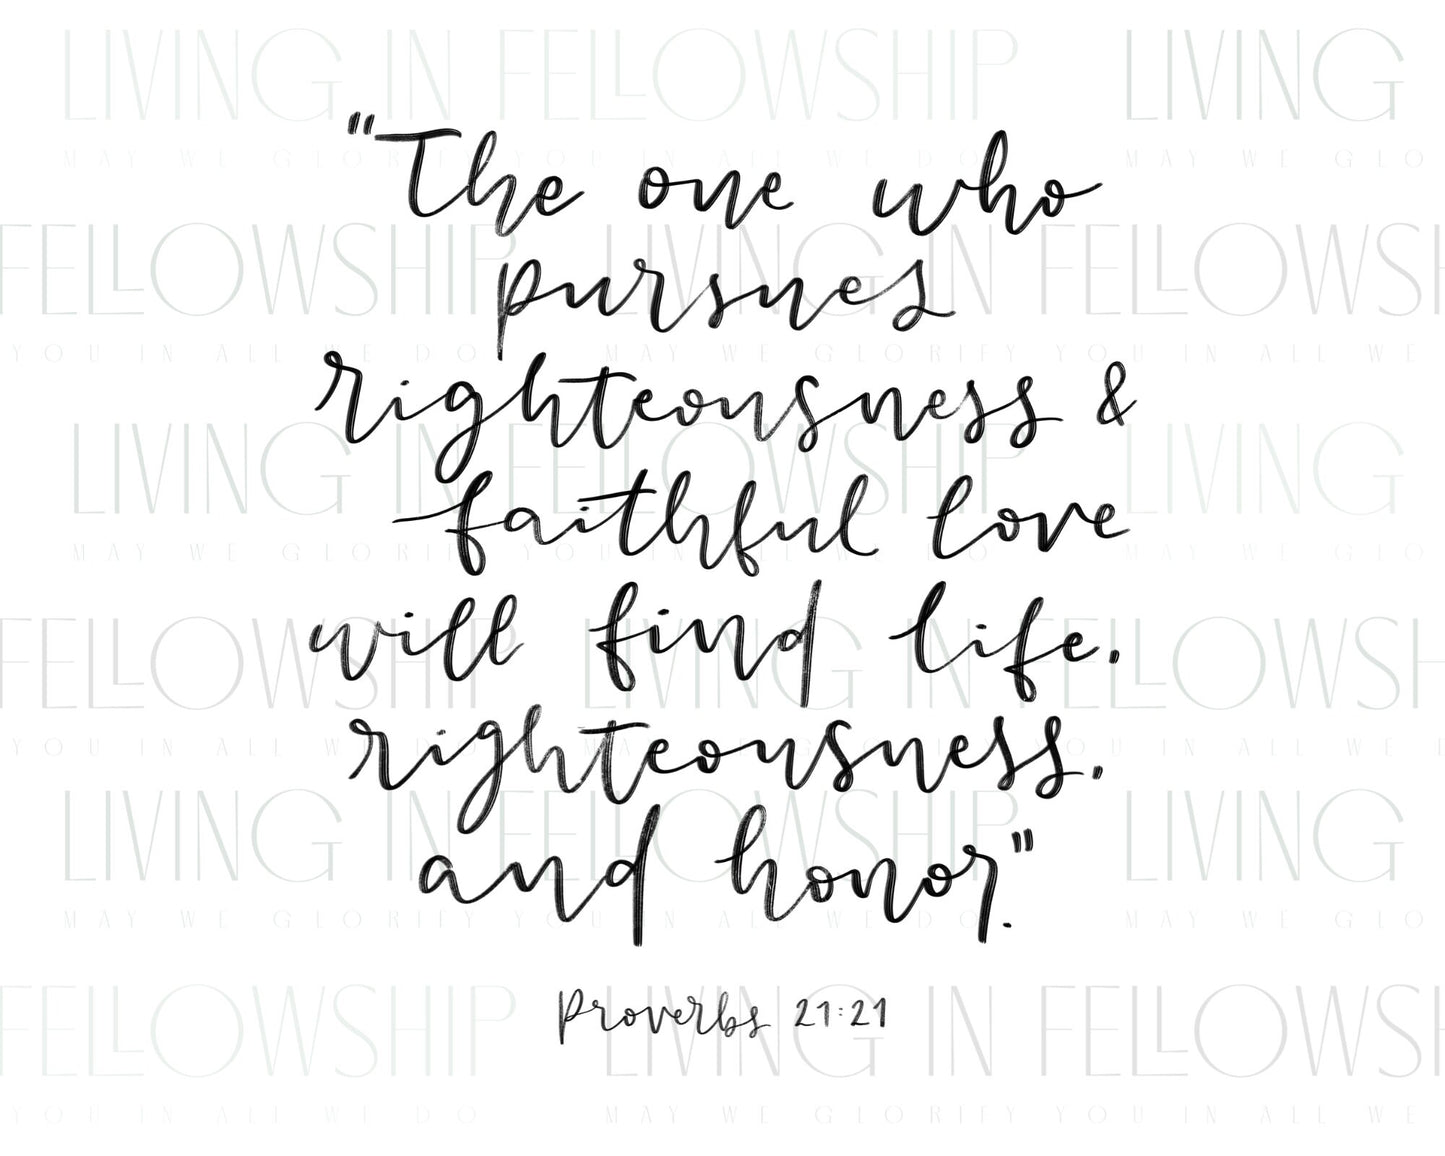 LIVING IN FELLOWSHIP LIVING
"The one who
MAY WE GLORIFY YOU IN ALL WE DO MAY WE GLO
FELLOWSHIP LIVING IN FELLOWSHI
pursues
YOU IN ALL WE DO MAY WE GLORIFY YOU IN ALL WE
righteousness &
LIVING IN FELLOWSHIP LIVING
faithful love
MAY WE GLORIFY YOU IN ALL WE DO MAY WE GLO
will find life.
FELLOWSHIP LIVING IN FELLOWSH
righteousness.
YOU IN ALL WE DO MAY WE GLORIFY YOU IN ALL WE
LIVING IN FELLOWSHIP LIVING
and honor."
MAY WE GLORIFY YOU IN ALL WE DO MAY WE GLO
FELLOWSHIP LIVING IN FELLOWSHI
Proverbs 21:21
YOU IN ALL WE DO MAY WE GLORIFY YOU IN ALL WE